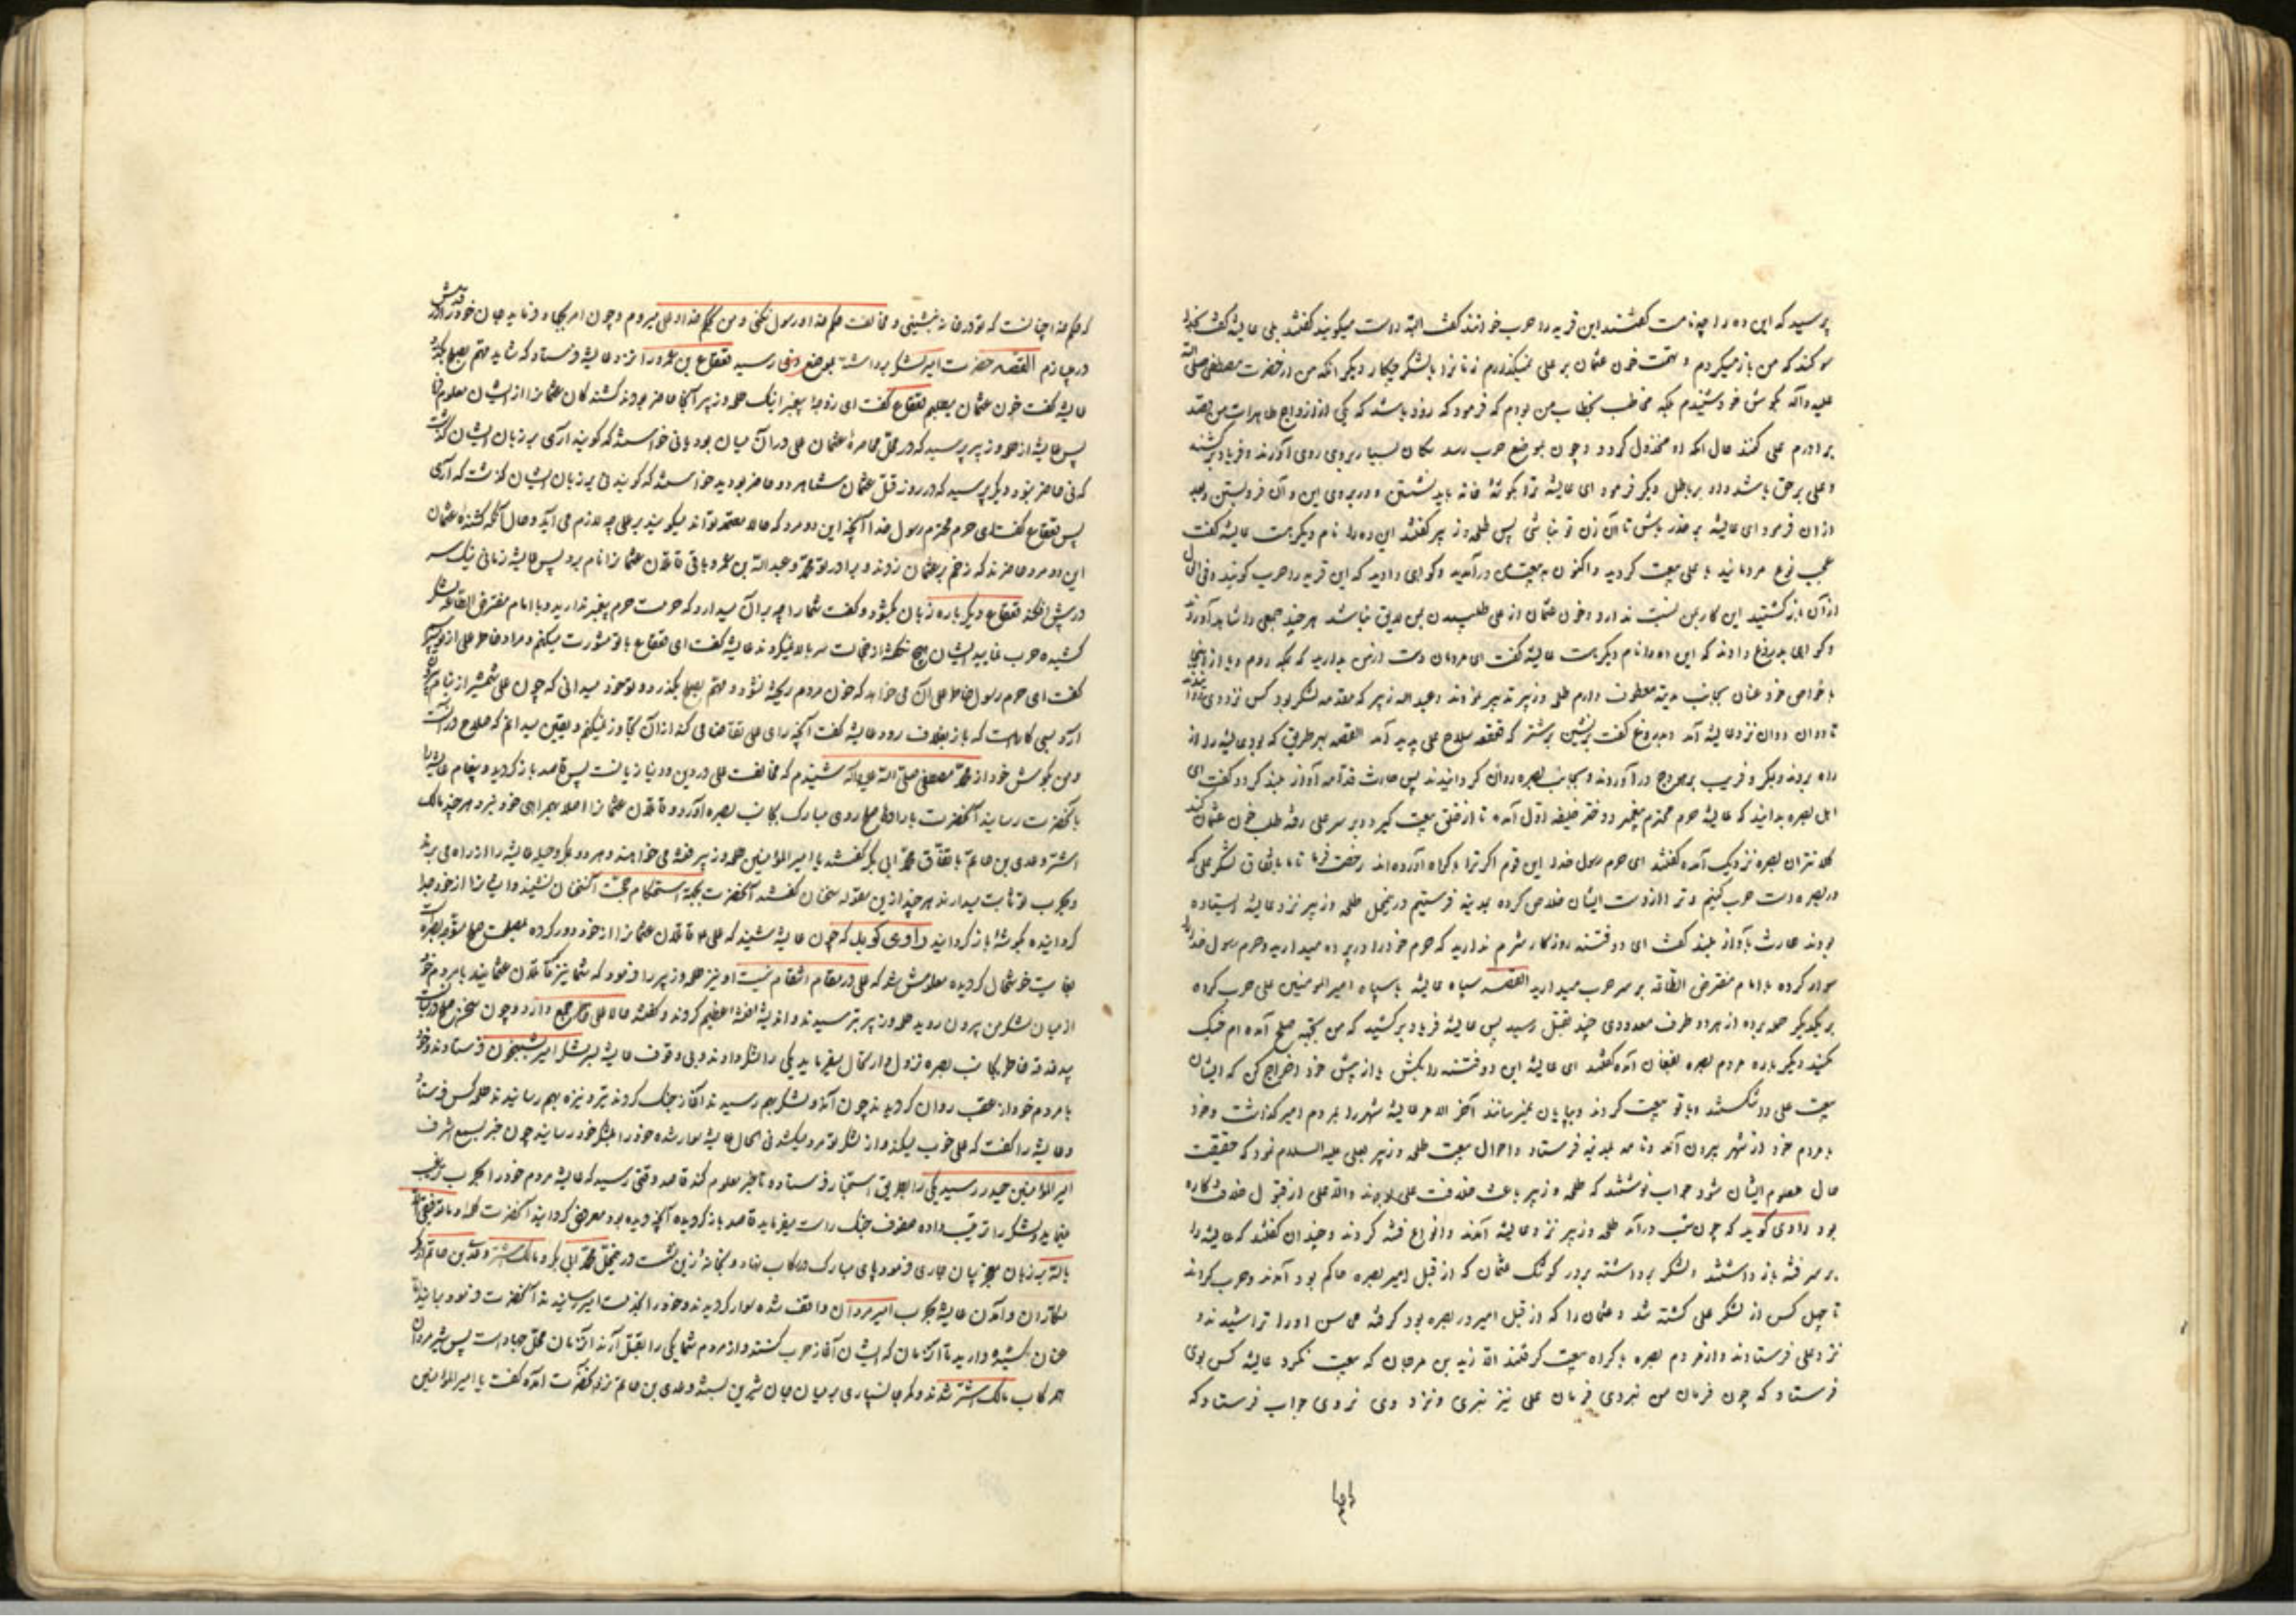 پرسید که این ده را چه نامست گفتند این قریه را حوب خوانند گفت البته راست میکویند گفتند بلی عایشه گفت بخدا
سوکند که من باز میکردم و تهمت خون عثمان بر علی نمیکذارم زنانرا با لشکر چکار دیکر انکه من از حضرت مصطفی صلی الله
علیه وآله بکوش خود شنیدم بلکه مخاطب بخطاب من بودم که فرمود که زود باشد که یکی از ازواج طاهرات من قصد
برادرم علی کند حال انکه او مخذول کردد و چون بموضع حوب رسد سکان بسیار بروی روی آورند و فریاد
و علی بر حق باشد و او بر باطل دیکر فرمود ای عایشه ترا بکوشه خانه باید نشستن و در بروی این و آن فروبستن و بعد
ازان فرمود ای عایشه بر حذر باش تا آن زن تو نباشی پس طلحه و زبیر کفتند این ده را نام دیکرست عایشه کفت
عجب نوع مردمانید با علی بیعت کردید و اکنون به بیعت من درآمدید و کواهی دادید که این قریه را حوب کویند و فی الحال
ازآن باز کشتید این کار بمن نسبت ندارد و خون عثمان از علی طلبیدن بمن لایق نباشد هر چند جمعی را شاهد آوردند
و کواهی بدروغ دادند که این ده را نام دیکرست عایشه کفت ای مردمان دست از من بدارید که بمکه روم و یا از اینجا
با خواص خود عنان بجانب مدینه معطوف دارم طلحه و زبیر تدبیر نمودند و عبد الله زبیر که مقدمه لشکر بود کس نزد وی
تا دوان دوان نزد عایشه آمد و بدروغ کفت بنشین بر شتر که قعقعه سلاح علی پدید آمد القصه بهر طریق که بود عایشه را از
راه بردند و بمکر و فریب بر هودج درآوردند و بجانب بصره روان کردانیدند پس حارث قدامه آواز بلند کرد و کفت ای
اهل بصره بدانید که عایشه حرم محترم پیغمبر و دختر خلیفه اول آمده تا از خلق بیعت کیرد و بر سر علی رفته طلب خون عثمان کند
کلانتران بصره نزدیک آمده کفتند ای حرم رسول خدا این قوم اکر ترا باکراه آورده اند رخصت فرما تا ما باتفاق لشکر علی که
در بصره است حرب کنیم و ترا از دست ایشان خلاص کرده بمدینه فرستیم درین محل طلحه و زبیر نزد عایشه ایستاده
بودند حارث بآواز بلند کفت ای دو فتنه روزکار شرم ندارید که حرم خود را در پرده میدارید و حرم رسول خدا را
سوار کرده با امام مفترض الطاعه بر سر حرب میدارید القصه سپاه عایشه با سپاه امیر المومنین علی حرب کرده
بر یکدیکر حمله برده از هر دو طرف معدودی چند بقتل رسید پس عایشه فریاد برکشید که من بجهة صلح آمده ام جنک
مکنید دیکر باره مردم بصره بفغان آمده کفتند ای عایشه این دو فتنه را بکش یا از پیش خود اخراج کن که ایشان
بیعت علی را شکستند و با تو بیعت کردند و بپایان نمیرسانند آخر الامر عایشه شهر را بمردم امیر کذاشت و خود
با مردم خود از شهر بیرون آمد و نامه بمدینه فرستاد و احوال بیعت طلحه و زبیر بعلی علیه السلام نمود که حقیقت
حال معلوم ایشان شود جواب نوشتند که طلحه و زبیر باعث خلافت علی بودند والا علی از قبول خلافت کاره
بود راوی کوید که چون شب درآمد طلحه و زبیر نزد عایشه آمدند و انواع فتنه کردند و چندان کفتند که عایشه را
بر سر فتنه باز داشتند و لشکر برداشته بر در کوشک عثمان که از قبل امیر بصره حاکم بود آمدند و حرب کردند
تا چهل کس از لشکر علی کشته شد و عثمان را که از قبل امیر در بصره بود کرفته محاسن او را تراشیدند و
نزد علی فرستادند و از مردم بصره باکراه بیعت کرفتند الا زید بن مرجان که بیعت نکرد عایشه کس بوی
فرستاد که چون فرمان من نبردی فرمان علی نیز نبری و نزد وی نروی جواب فرستاد که
که حکم خدا چنانست که تو در خانه بنشینی و مخالفت حکم خدا و رسول نکنی و من بحکم خدا و علی میروم و چون امر بجهاد فرماید جان خود در
دربازم القصه حضرت امیر لشکر برداشته بموضع رسید قعقاع بن عمرو را نزد عایشه فرستاد که شاید مهم بصلح
عایشه کفت خون عثمان میطلبم قعقاع کفت ای زوجه پیغمبر اینک طلحه و زبیر آنجا حاضر بودند کشندکان عثمانرا از ایشان معلوم
پس عایشه از طلحه و زبیر پرسید که در محل محاصرهٔ عثمان علی دران میان بود یا نی خواستند که کویند آری بر زبان ایشان کذشت
که نی حاضر نبود دیکر پرسید که در روز قتل عثمان شما هر دو حاضر بودید خواستند که کویند نی بر زبان ایشان کذشت که آری
پس قعقاع کفت ای حرم محترم رسول خدا آنچه این دو مرد که حالا معتمد تو اند میکویند بر علی چه لازم می آید و حال آنکه کشندهٔ عثمان
این دو مرد حاضرند که زخم بر عثمان زدند و برادر تو محمد و عبد الله بن عمر و باقی قاتلان عثمانرا نام برد پس عایشه زمانی نیک سر
در پیش افکند قعقاع دیکر باره زبان بکشود و کفت شما را چه بر آن میدارد که حرمت حرم پیغمبر ندارید و با امام مفترض الطاعه لشکر
کشیده حرب نمایید ایشان هیچ نکفتند از خجالت سر بالا نمیکردند عایشه کفت ای قعقاع با تو مشورت میکنم و مراد خاطر علی از تو
کفت ای حرم رسول خاطر علی آن می خواهد که خون مردم ریخته نشود و مهم بصلح بکذرد و تو خود میدانی که چون علی شمشیر از نیام
آرد بسی کارهاست که باز بغلاف رود عایشه کفت آنچه رای علی تقاضا می کند ازان تجاوز نمیکنم و بیقین میدانم که صلاح درآنست
و من بکوش خود از محمد مصطفی صلی الله علیه وآله شنیدم که مخالفت علی در دین و دنیا زیانست پس قاصد باز کردید و پیغام عایشه را
بآنحضرت رسانید آنحضرت با راه صلح روی مبارک بجانب بصره آورد و قاتلان عثمانرا اصلا بهمراهی خود نبرد هر چند مالک
اشتر و عدی بن حاتم باتفاق محمد ابی بکر کفتند یا امیر المؤمنین طلحه و زبیر فتنه می خواهند و هر دو بمکر و حیله عایشه را از راه می برند
و بحرب تو ثابت میدارند هر چند ازین مقوله سخنان کفتند آنحضرت بجهة استحکام حجت آن سخنان نشنید و ایشانرا از خود جدا
کردانیده بکوشهٔ باز کردانید راوی کوید که چون عایشه شنید که علی قاتلان عثمانرا از خود دور کرده بمصلحت صلح متوجه بصره است
بغایت خوشحال کردیده معلومش شد که علی در مقام انتقام نیست او نیز طلحه و زبیر را فرمود که شما نیز قاتلان عثمانید با مردم خود
از میان لشکر من بیرون روید طلحه و زبیر بترسیدند و اندیشهٔ فتنهٔ عظیم کردند و کفتند حالا علی خاطر جمع دارد و چون سخن صلح درمیانست
بجانب بصره نزول و ارتحال میفرماید یکی را لشکر دادند و بی وقوف عایشه بر سر لشکر امیر بشبیخون فرستادند و خود
با مردم خود از عقب روان کردیدند چون آن دو لشکر بهم رسیدند آغاز جنک کردند تیر و نیزه بهم رسانیدند طلحه کس فرستاد
و عایشه را کفت که علی حرب میکند و از لشکر تو مرد میکشد فی الحال عایشه سوار شده خود را بلشکر خود رسانید چون خبر بسمع اشرف
امیر المؤمنین حیدر رسید یکی را بطریق استخبار فرستاده تا خبر معلوم کند قاصد وقتی رسید که عایشه مردم خود را بحرب ترغیب
مینماید و لشکر را ترتیب داده صفوف جنک راست میفرماید قاصد باز کردیده آنچه دیده بود معروض کردانید آنحضرت کلمه و ما توفیقی الا
بالله بر زبان معجز بیان جاری فرمود پای مبارک در رکاب نهاد و بخانهٔ زین نشست درین محل محمد ابی بکر و مالک اشتر و عدی بن حاتم از
مکاران و آمدن عایشه بحرب امیر مردان واقف شده سوار کردیدند و خود را بخدمت امیر رسانیدند آنحضرت فرمود
عنان کشیده دارید تا آنزمان که ایشان آغاز حرب کنند و از مردم شما یکی را بقتل آرند آنزمان محل جهاد است پس شیر مردان
هم رکاب مالک اشتر شدند و کمر جانسپاری بر میان جان شیرین بسته و عدی بن حاتم نزد آنحضرت آمده کفت یا امیر المؤمنین